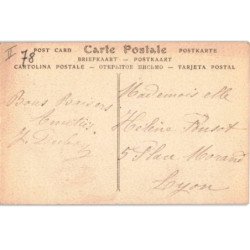 II
78
POST CARD Carte Postale POSTKARTE
BRIEFKAART — POSTKAART
CARTOLINA POSTALE — ОТКРЫТОЕ ПИСЬМО — TARJETA POSTAL
Bons Baisers
Mademoiselle
Hélène
5 Place Morand
Lyon